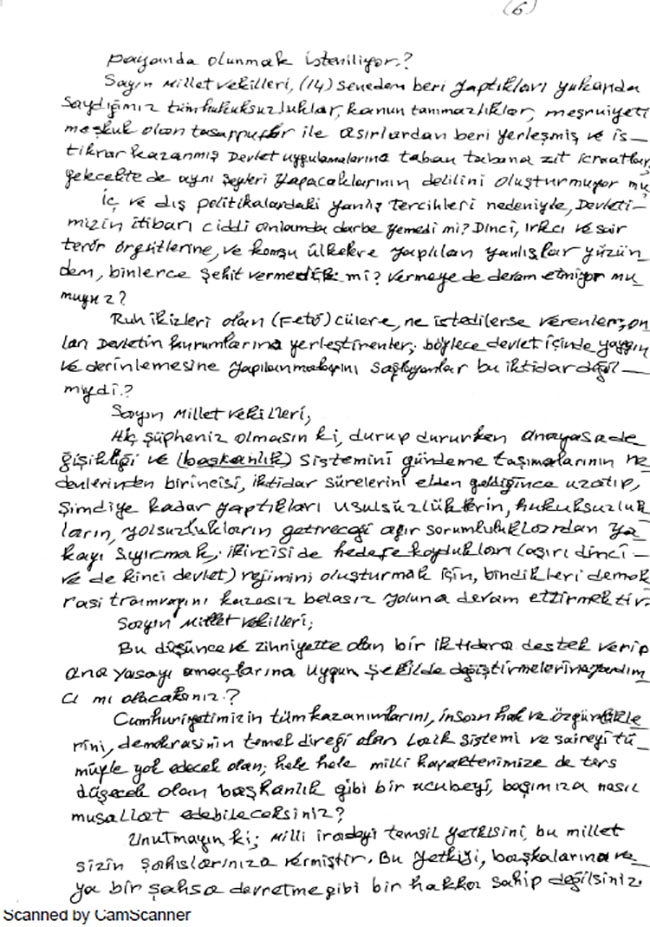 (6)
payanda olunmak isteniliyor.?
Sayın Milletvekilleri, (14) seneden beri yaptıkları yukarıda
saydığımız tüm hukuksuzluklar, kanun tanımazlıklar, meşruiyeti
meşkuk olan tasarruflar ile asırlardan beri yerleşmiş ve is-
tikrar kazanmış Devlet uygulamalarına taban tabana zıt icraatlar,
gelecekte de aynı şeyleri yapacaklarının delilini oluşturmuyor mu
İç ve dış politikalardaki yanlış tercihleri nedeniyle, Devleti-
mizin itibarı ciddi anlamda darbe yemedi mi? Dinci, ırkcı ve sair
terör örgütlerine, ve komşu ülkelere yapılan yanlışlar yüzün
den, binlerce şehit vermedik mi? Vermeye de devam etmiyor mu
muyuz?
Ruh ikizleri olan (Fetö) cülere, ne istedilerse verenler, on
ları Devletin kurumlarına yerleştirenler; böylece devlet içinde yaygın
ve derinlemesine yapılanmalarını sağlıyanlar bu iktidar değil-
miydi.?
Sayın Milletvekilleri,
Hiç şüpheniz olmasın ki, durup dururken anayasa de
ğişikliği ve (başkanlık) sistemini gündeme taşımalarının ne
denlerinden birincisi, iktidar sürelerini elden geldiğince uzatıp,
şimdiye kadar yaptıkları usulsüzlüklerin, hukuksuzluk
ların, yolsuzlukların getireceği ağır sorumluluklardan ya
kayı sıyırmak; ikincisi de hedefe koydukları (aşırı dinci-
ve de kinci devlet) rejimini oluşturmak için, bindikleri demok
rasi tramvayını kazasız belasız yoluna devam ettirmektir.
Sayın Milletvekilleri;
Bu düşünce ve zihniyette olan bir iktidara destek verip
ana yasayı amaçlarına uygun şekilde değiştirmelerine yardım
cı mı olacaksınız.?
Cumhuriyetimizin tüm kazanımlarını, insan hak ve özgürlükle
rini, demokrasinin temel direği olan Laik sistemi ve saireyi tü
müyle yok edecek olan; hele hele milli karakterimize de ters
düşecek olan başkanlık gibi bir ucubeyi, başımıza nasıl
musallat edebileceksiniz?
Unutmayın ki; Milli iradeyi temsil yetkisini, bu millet
sizin şahıslarınıza vermiştir. Bu yetkiyi, başkalarına ve
ya bir şahsa devretme gibi bir hakka sahip değilsiniz.
Scanned by CamScanner